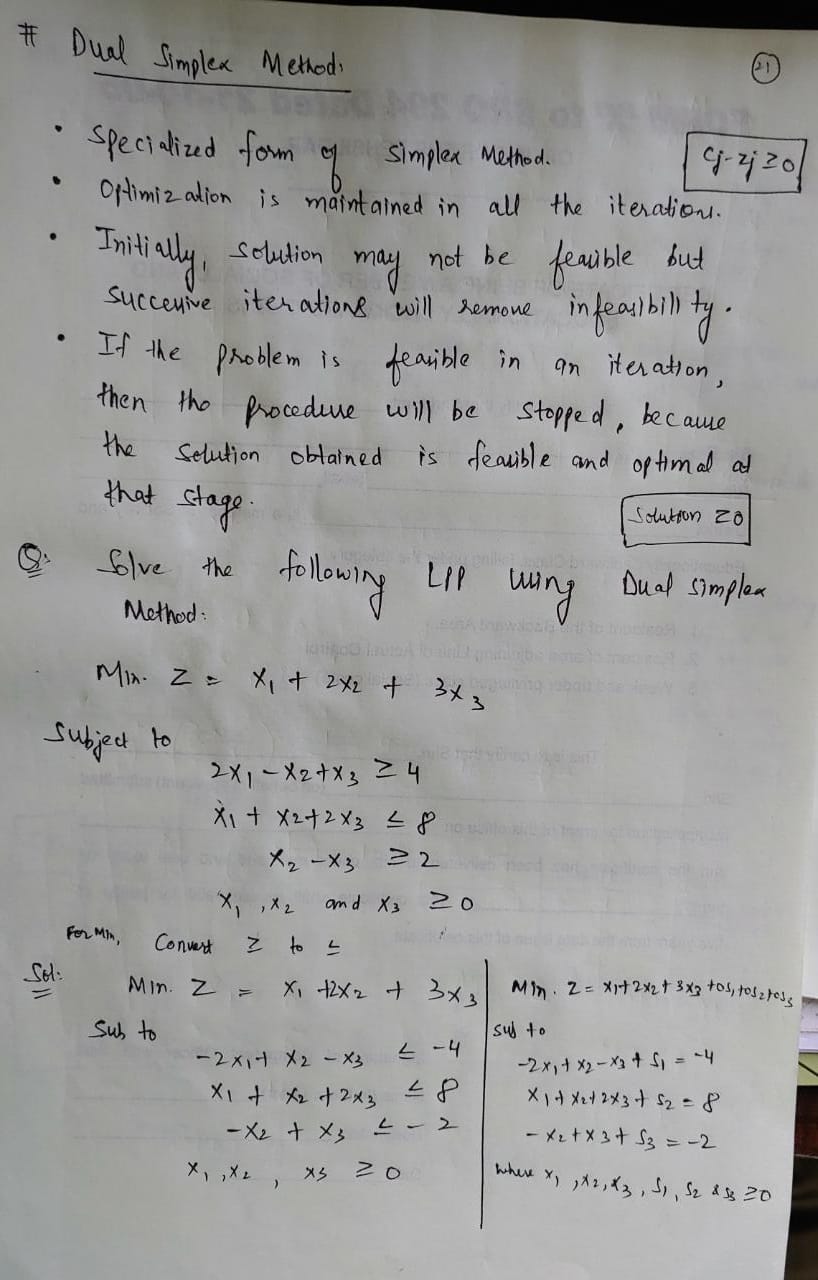 # Dual Simplex Method:
21
• Specialized form of Simplex Method.
Cj-Zj ≥0
• Optimization is maintained in all the iterations.
• Initially, solution may not be feasible but
successive iterations will remove infeasibillity.
• If the problem is feasible in an iteration,
then the procedure will be stopped, because
the solution obtained is feasible and optimal at
that stage.
Solution ≥0
Q: Solve the following LPP using Dual simplex
Method:
Min. Z = X1 + 2X2 + 3X3
Subject to
2X1 - X2 + X3 ≥ 4
X1 + X2 + 2X3 ≤ 8
X2 - X3 ≥ 2
X1, X2 and X3 ≥ 0
For Min, Convert ≥ to ≤
Sol:
Min. Z = X1 + 2X2 + 3X3
Sub to
-2X1 + X2 - X3 ≤ -4
X1 + X2 + 2X3 ≤ 8
-X2 + X3 ≤ -2
X1, X2, X3 ≥ 0
Min. Z = X1 + 2X2 + 3X3 + 0S1 + 0S2 + 0S3
sub to
-2X1 + X2 - X3 + S1 = -4
X1 + X2 + 2X3 + S2 = 8
-X2 + X3 + S3 = -2
where X1, X2, X3, S1, S2 & S3 ≥0